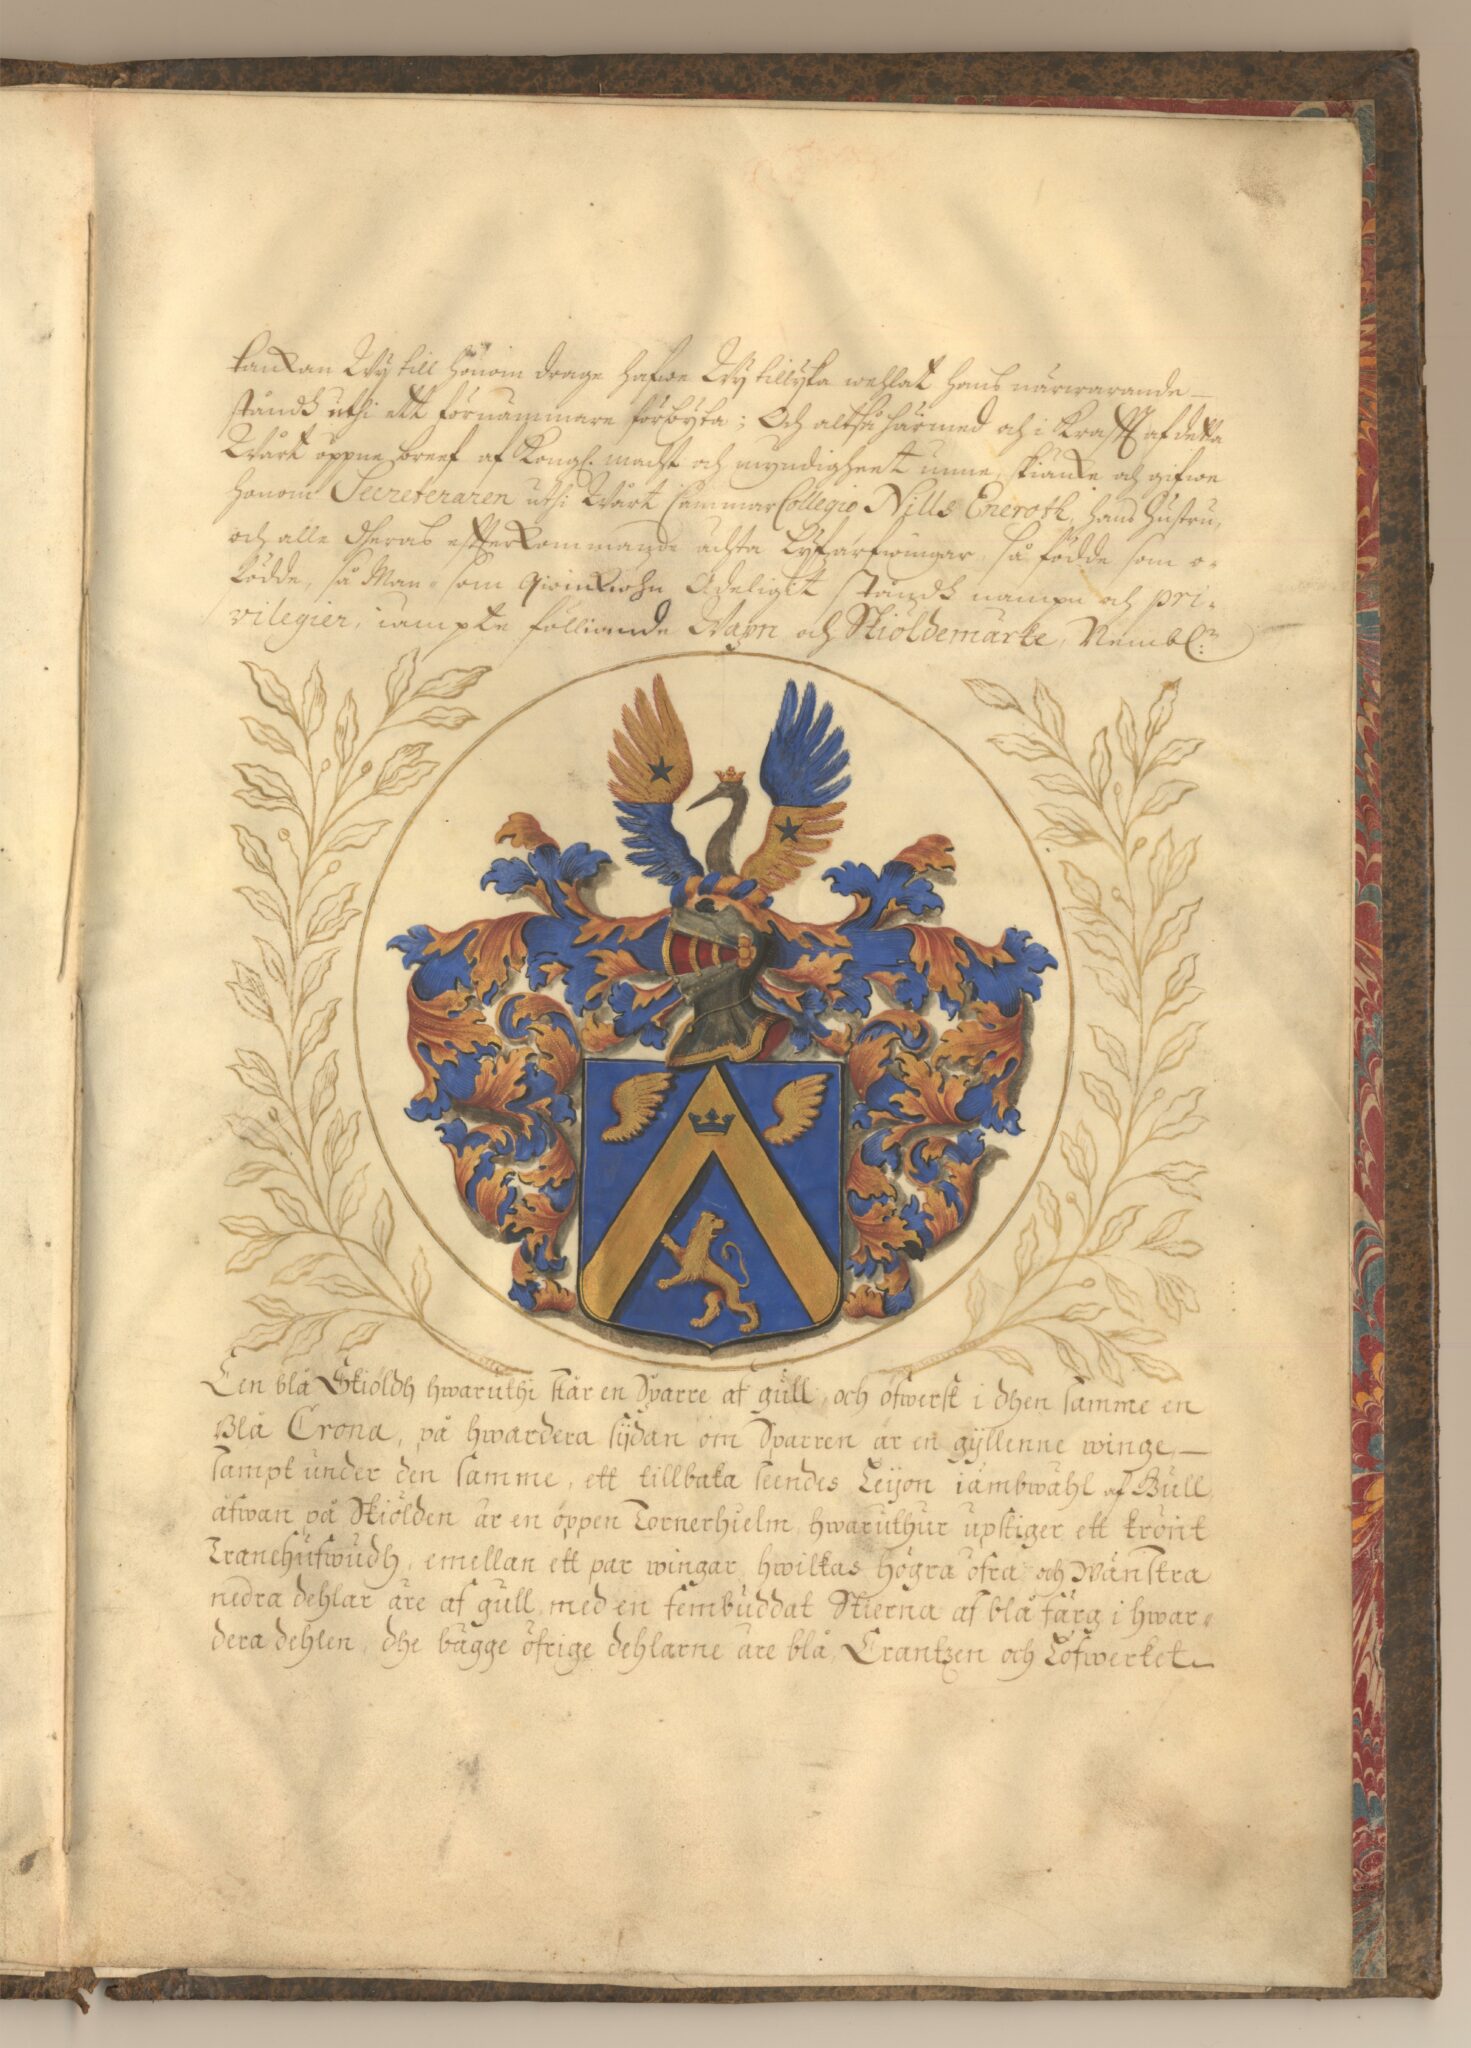 tankan Wÿ till honom drage hafwe Wÿ tillÿka wehlat hans närwarande
ståndh uthi ett förnämmare förbÿta; Och altså härmed och i krafft af detta
Wårt öppne breef af Kongl. macht och myndigheet unne, skiänke och gifwe
honom Secreteraren uthi Wårt Cammar Collegio Nills Eneroth, hans hustru,
och alle dheras effterkommande ächta lÿfzarfwingar, så födde som o-
födde, så Man- som qwinkiöhn Adeligit ståndh nampn och pri-
vilegier, iämpte fölliande Wapn och Skiöldemärke, Nembl:n
Een blå Skiöldh hwaruthi står en Sparre af gull, och öfwerst i dhen samme en
Blå Crona, på hwardera sÿdan om Sparren är en gÿllenne winge,
sampt under den samme, ett tillbaka seendes Leijon iämbwähl af Gull,
åfwan på Skiölden är en öppen Tornerhielm, hwaruthur upstiger ett krönt
Tranehufwudh, emellan ett par wingar, hwilkas högra öfra och Wänstra
nedra dehlar äre af gull, med en fembuddat Stierna af blå färg i hwar-
dera dehlen, dhe bägge öfrige dehlarne äre blå, Crantzen och Löfwerket